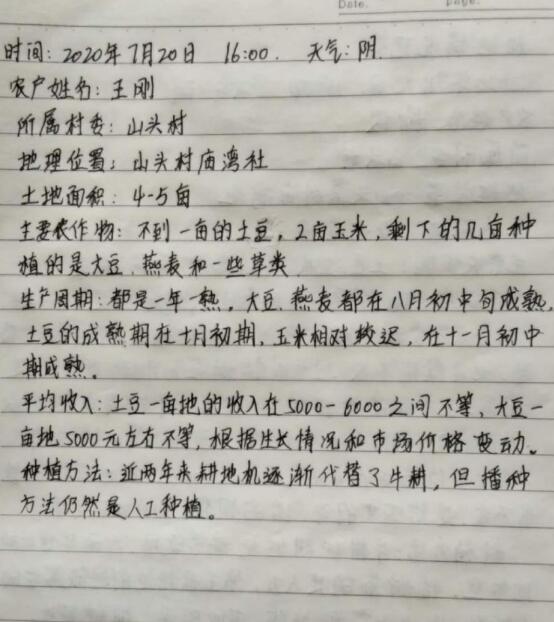 Date. Page.
时间：2020年7月20日 16:00. 天气：阴.
农户姓名：王刚
所属村委：山头村
地理位置：山头村庙湾社
土地面积：4-5亩
主要农作物：不到一亩的土豆，2亩玉米，剩下的几亩种
植的是大豆、燕麦和一些草类
生产周期：都是一年一熟，大豆、燕麦都在八月初中旬成熟，
土豆的成熟期在十月初期，玉米相对较迟，在十一月初中
期成熟。
平均收入：土豆一亩地的收入在5000-6000之间不等、大豆一
亩地5000元左右不等，根据生长情况和市场价格变动。
种植方法：近两年来耕地机逐渐代替了牛耕，但播种
方法仍然是人工种植。